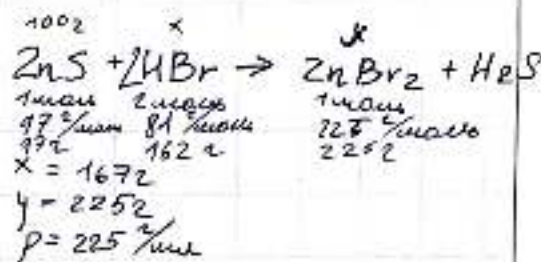 100г x y
ZnS + 2HBr → ZnBr2 + H2S
1моль 2моль 1моль
97 г/моль 81 г/моль 225 г/моль
97г 162 г 225г
x = 167г
y = 225г
ρ = 225 г/мл